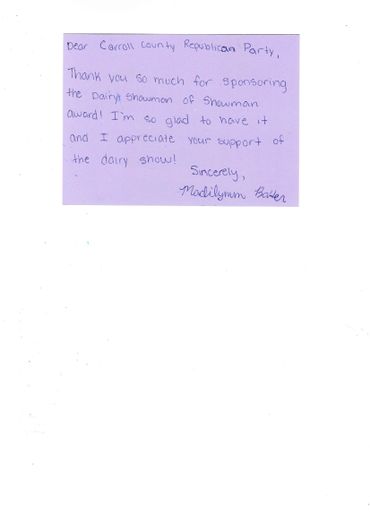 Dear Carroll County Republican Party,
Thank you so much for sponsoring
the Dairy Showman of Showman
award! I'm so glad to have it
and I appreciate your support of
the dairy show!
Sincerely,
Madilynn